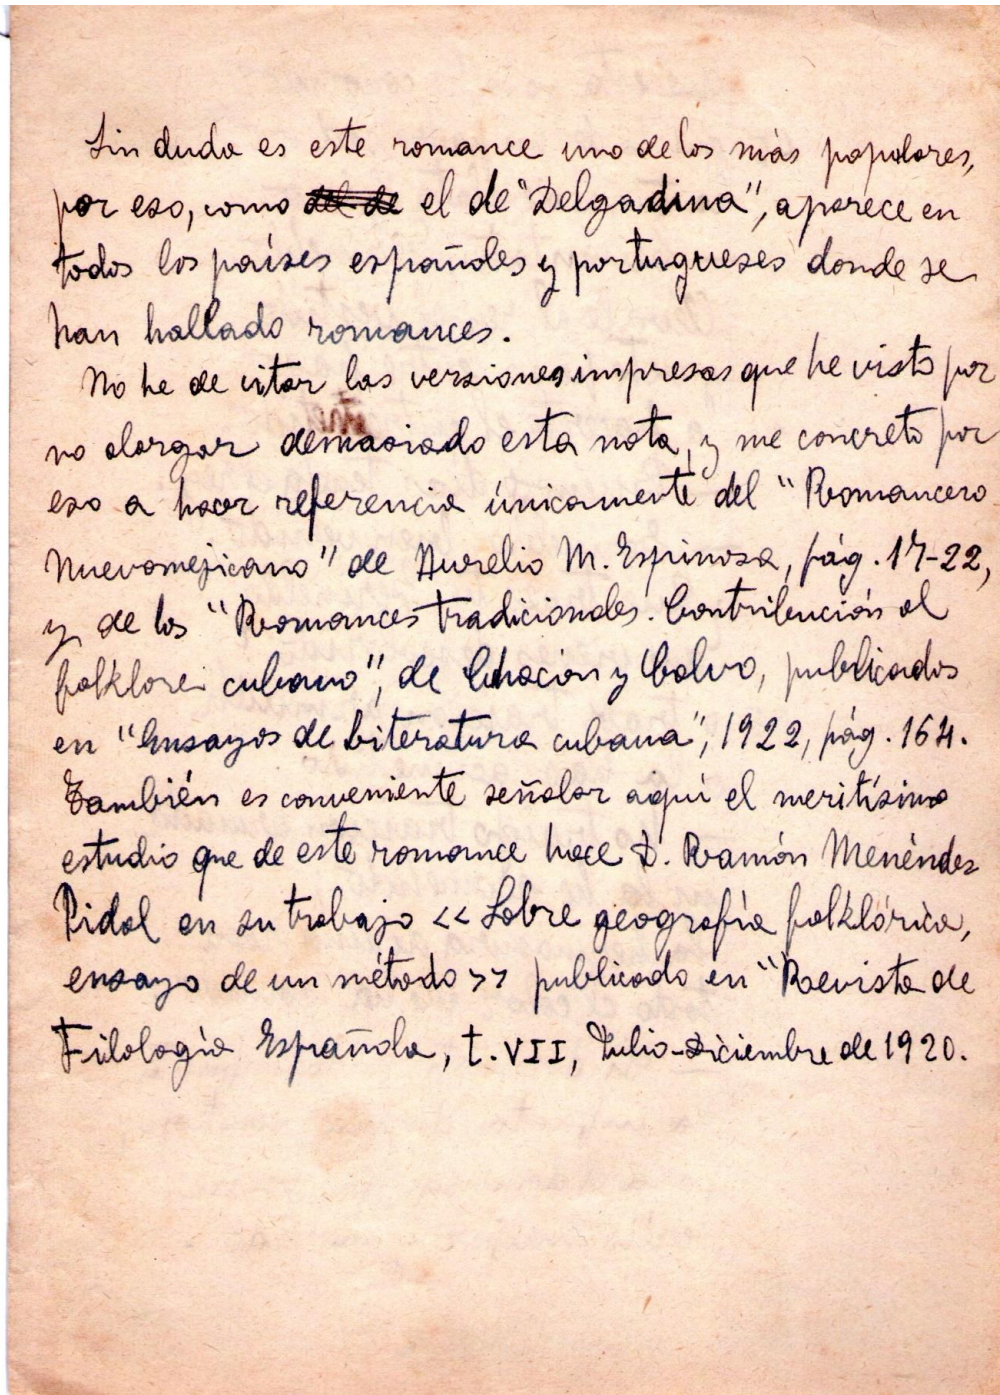 Sin duda es este romance uno de los más populares,
por eso, como del de el de "Delgadina", aparece en
todos los países españoles y portugueses donde se
han hallado romances.
No he de citar las versiones impresas que he visto por
no alargar demasiado esta nota, y me concreto por
eso a hacer referencia únicamente del "Romancero
Nuevomejicano" de Aurelio M. Espinosa, pág. 17-22,
y de los "Romances tradicionales. Contribución al
folklore cubano", de Chacón y Calvo, publicados
en "Ensayos de Literatura cubana", 1922, pág. 164.
También es conveniente señalar aquí el meritísimo
estudio que de este romance hace D. Ramón Menéndez
Pidal en su trabajo << Sobre geografía folklórica,
ensayo de un método >> publicado en "Revista de
Filología Española, t. VII, Julio-Diciembre de 1920.